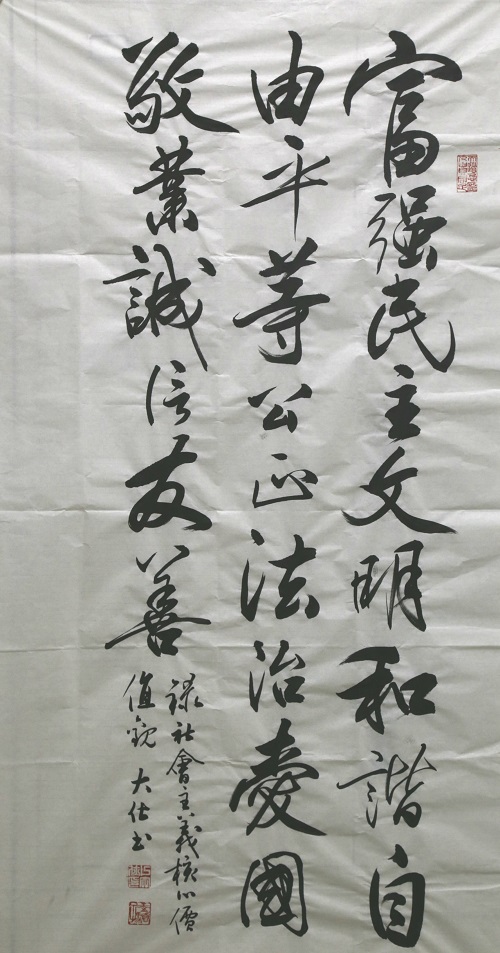 富强民主文明和諧自
由平等公正法治愛國
敬業誠信友善
録社會主義核心價
值觀 大仕书